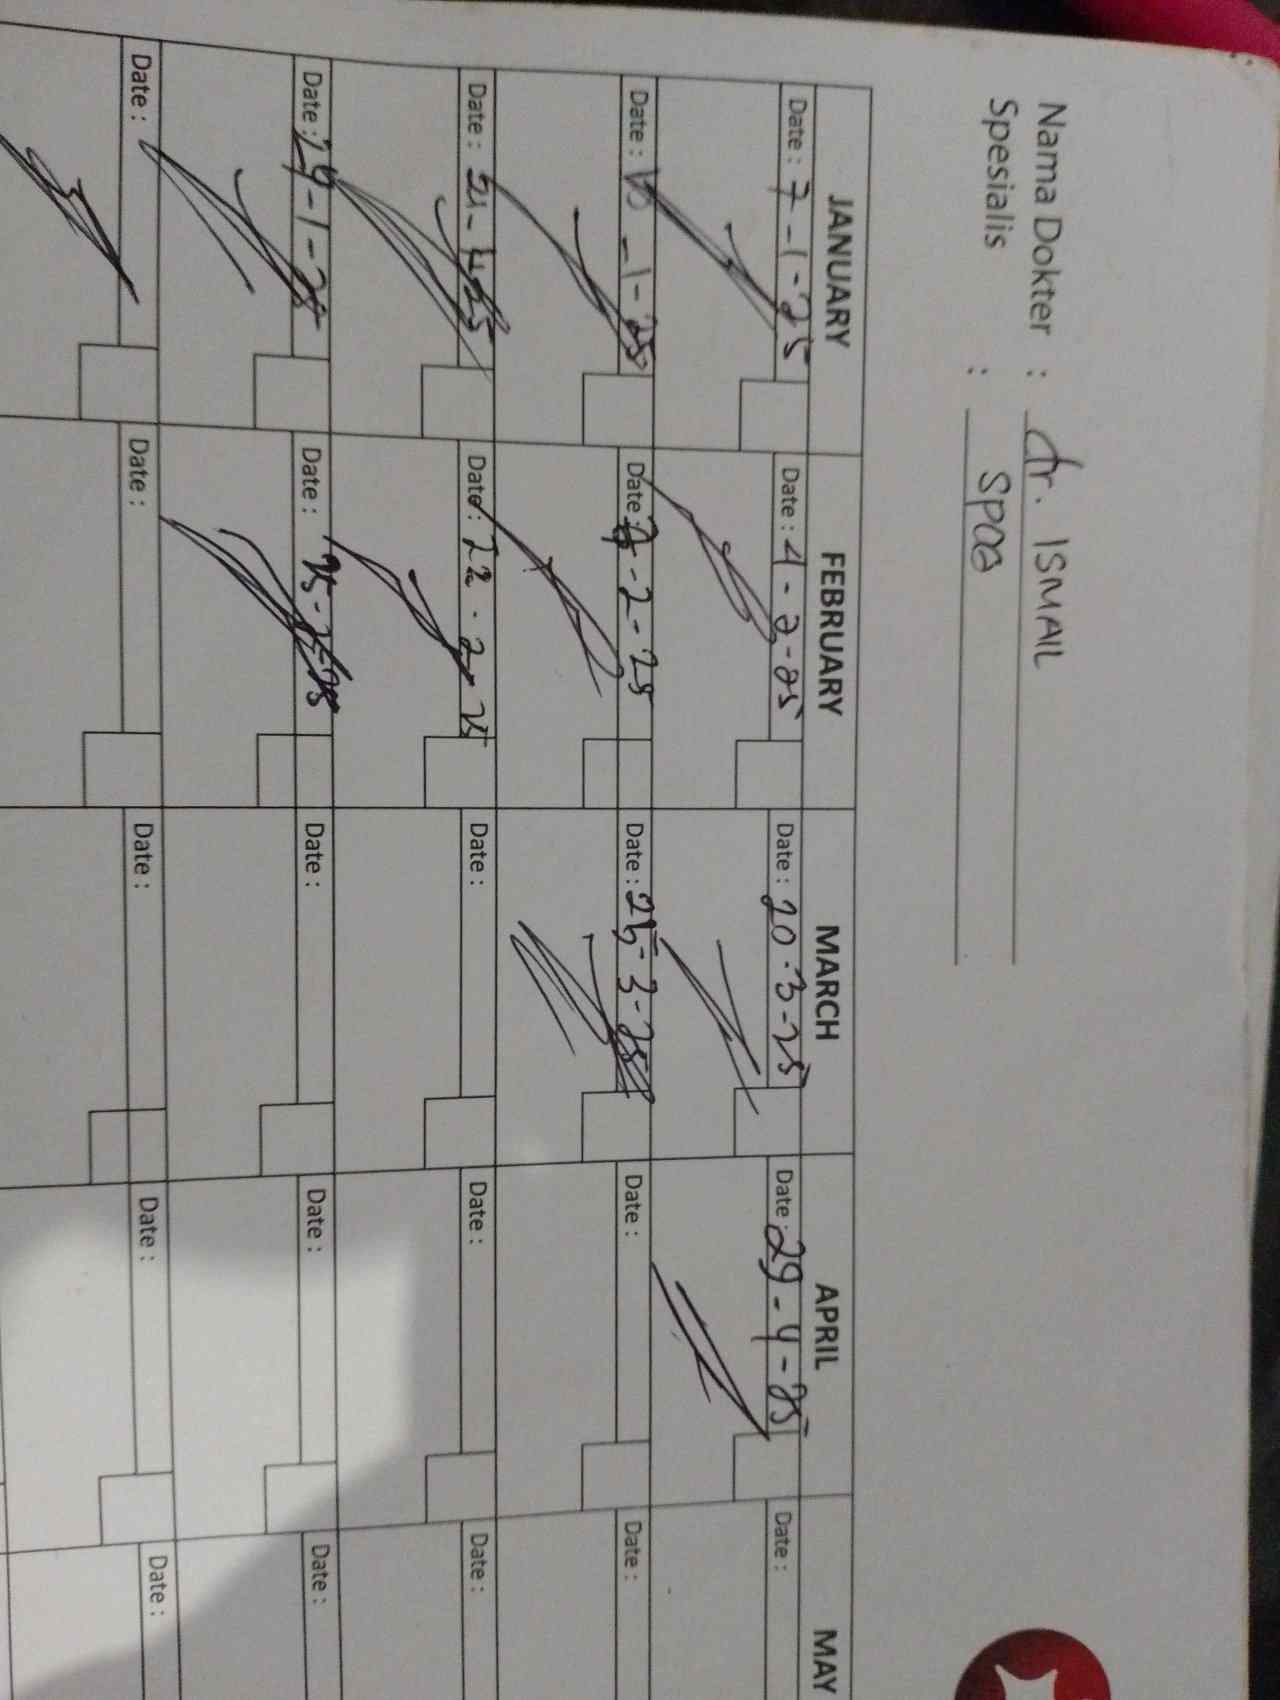 Nama Dokter : dr. ISMAIL
Spesialis : SPOG
JANUARY FEBRUARY MARCH APRIL MAY
Date : 7-1-25 Date : 4-2-25 Date : 20-3-25 Date : 29-4-25 Date :
Date : -1-25 Date : -2-25 Date : 25-3-25 Date : Date :
Date : 21- -25 Date : 22-2-25 Date : Date : Date :
Date : -1-25 Date : 25-2-25 Date : Date : Date :
Date : Date : Date : Date : Date :